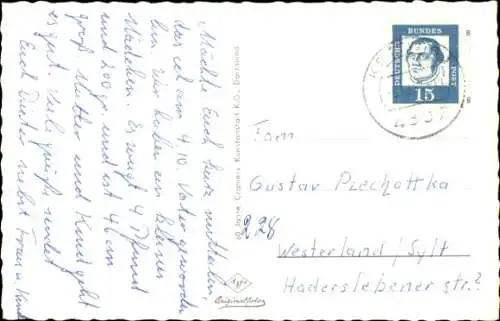 Möchte Euch kurz mitteilen,
das ich am 4.10. Vater geworden
bin. Wir haben ein kleines
Mädchen. Es wiegt 4 Pfund
und 200 gr. und ist 46 cm
groß. Mutter und Kind geht
es gut. Viele Grüße sendet
Euch Dieter nebst Frau u. Kind
Cramers Kunstanstalt K.G., Dortmund
Agfa
Originalfoto
DEUTSCHE BUNDES POST
15
Fam
Gustav Piechottka
228
Westerland / Sylt
Haderslebener str.?